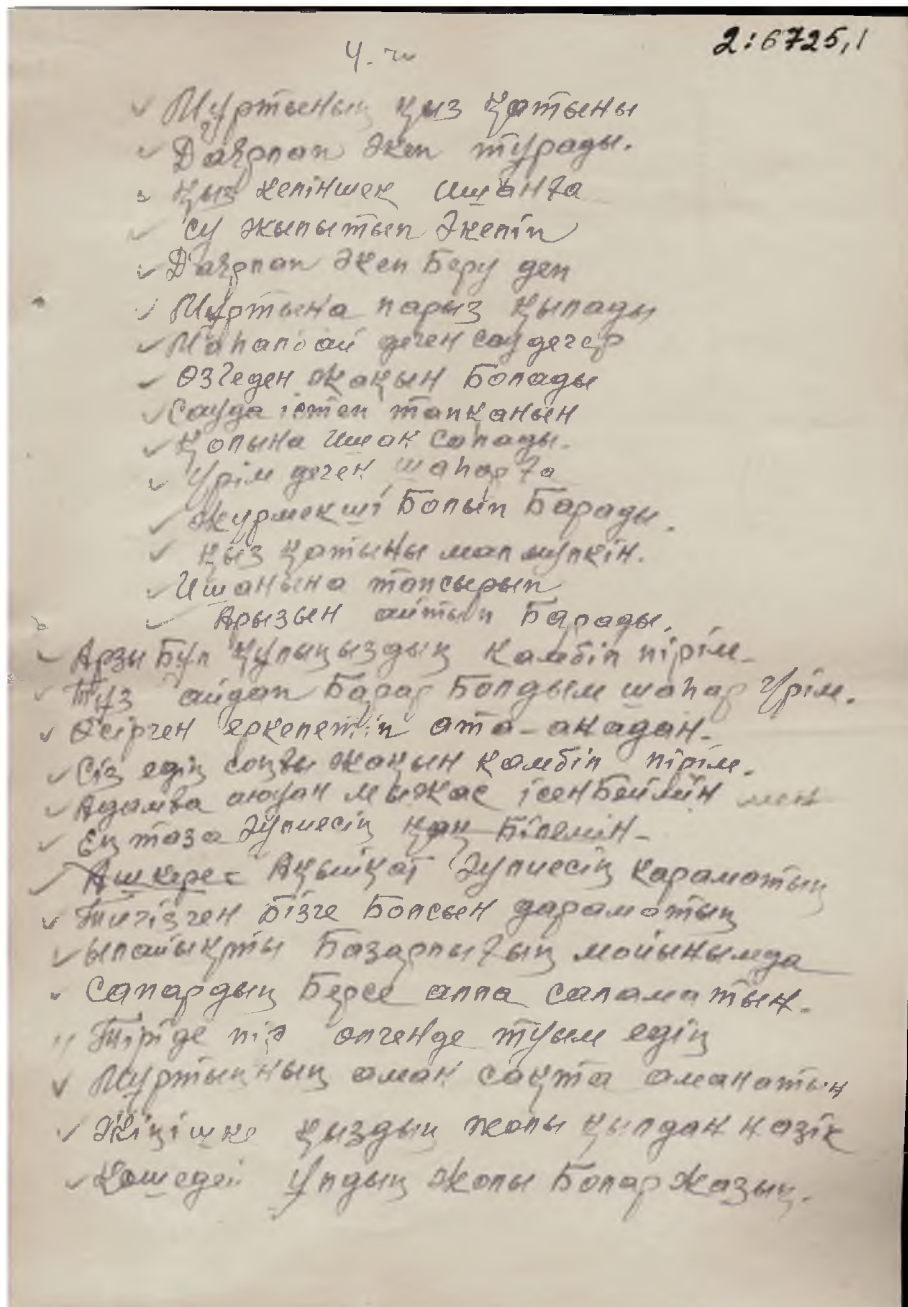 2:6725,1
4.
Мұртының қыз қатыны
Даярлап әкеп тұрады.
Қыз келіншек ишанға
су жылытып әкеліп
Даярлап әкеп Беру деп
Мұртына парыз қылады
Маһапбай деген саудегер
Өзгеден жақын Болады
Сауда істеп тапқанын
Қолына ишан салады.
Үрім деген шаһарға
Жүрмекші Болып Барады.
Қыз қатыны мал мүлкін.
Ишанына тапсырып
Арызын айтып Барады.
Арзы Бұл құлыңыздың кәмбіл пірім.
Тұз айдап Барар Болдым шаһар Үрім.
Өсірген еркелетіп ата-анадан.
Сіз едің соңғы жақын кәмбіл пірім.
Адамға ісенБеймін мен
Ең таза әулиесің Білемін
Ашкере Ақыйқат Әулиесің қараматың
Тигізген Бізге Болсын дараматың
Базарлығың мойынымда
Сапардың Берсе алла саламатын.
Тіріде пір өлгенде туым едің
Мұртыңның аман сақта аманатын
Жіңішке қыздың жолы қылдан нәзік
Көшедей Ұлдың жолы Болар жазық.